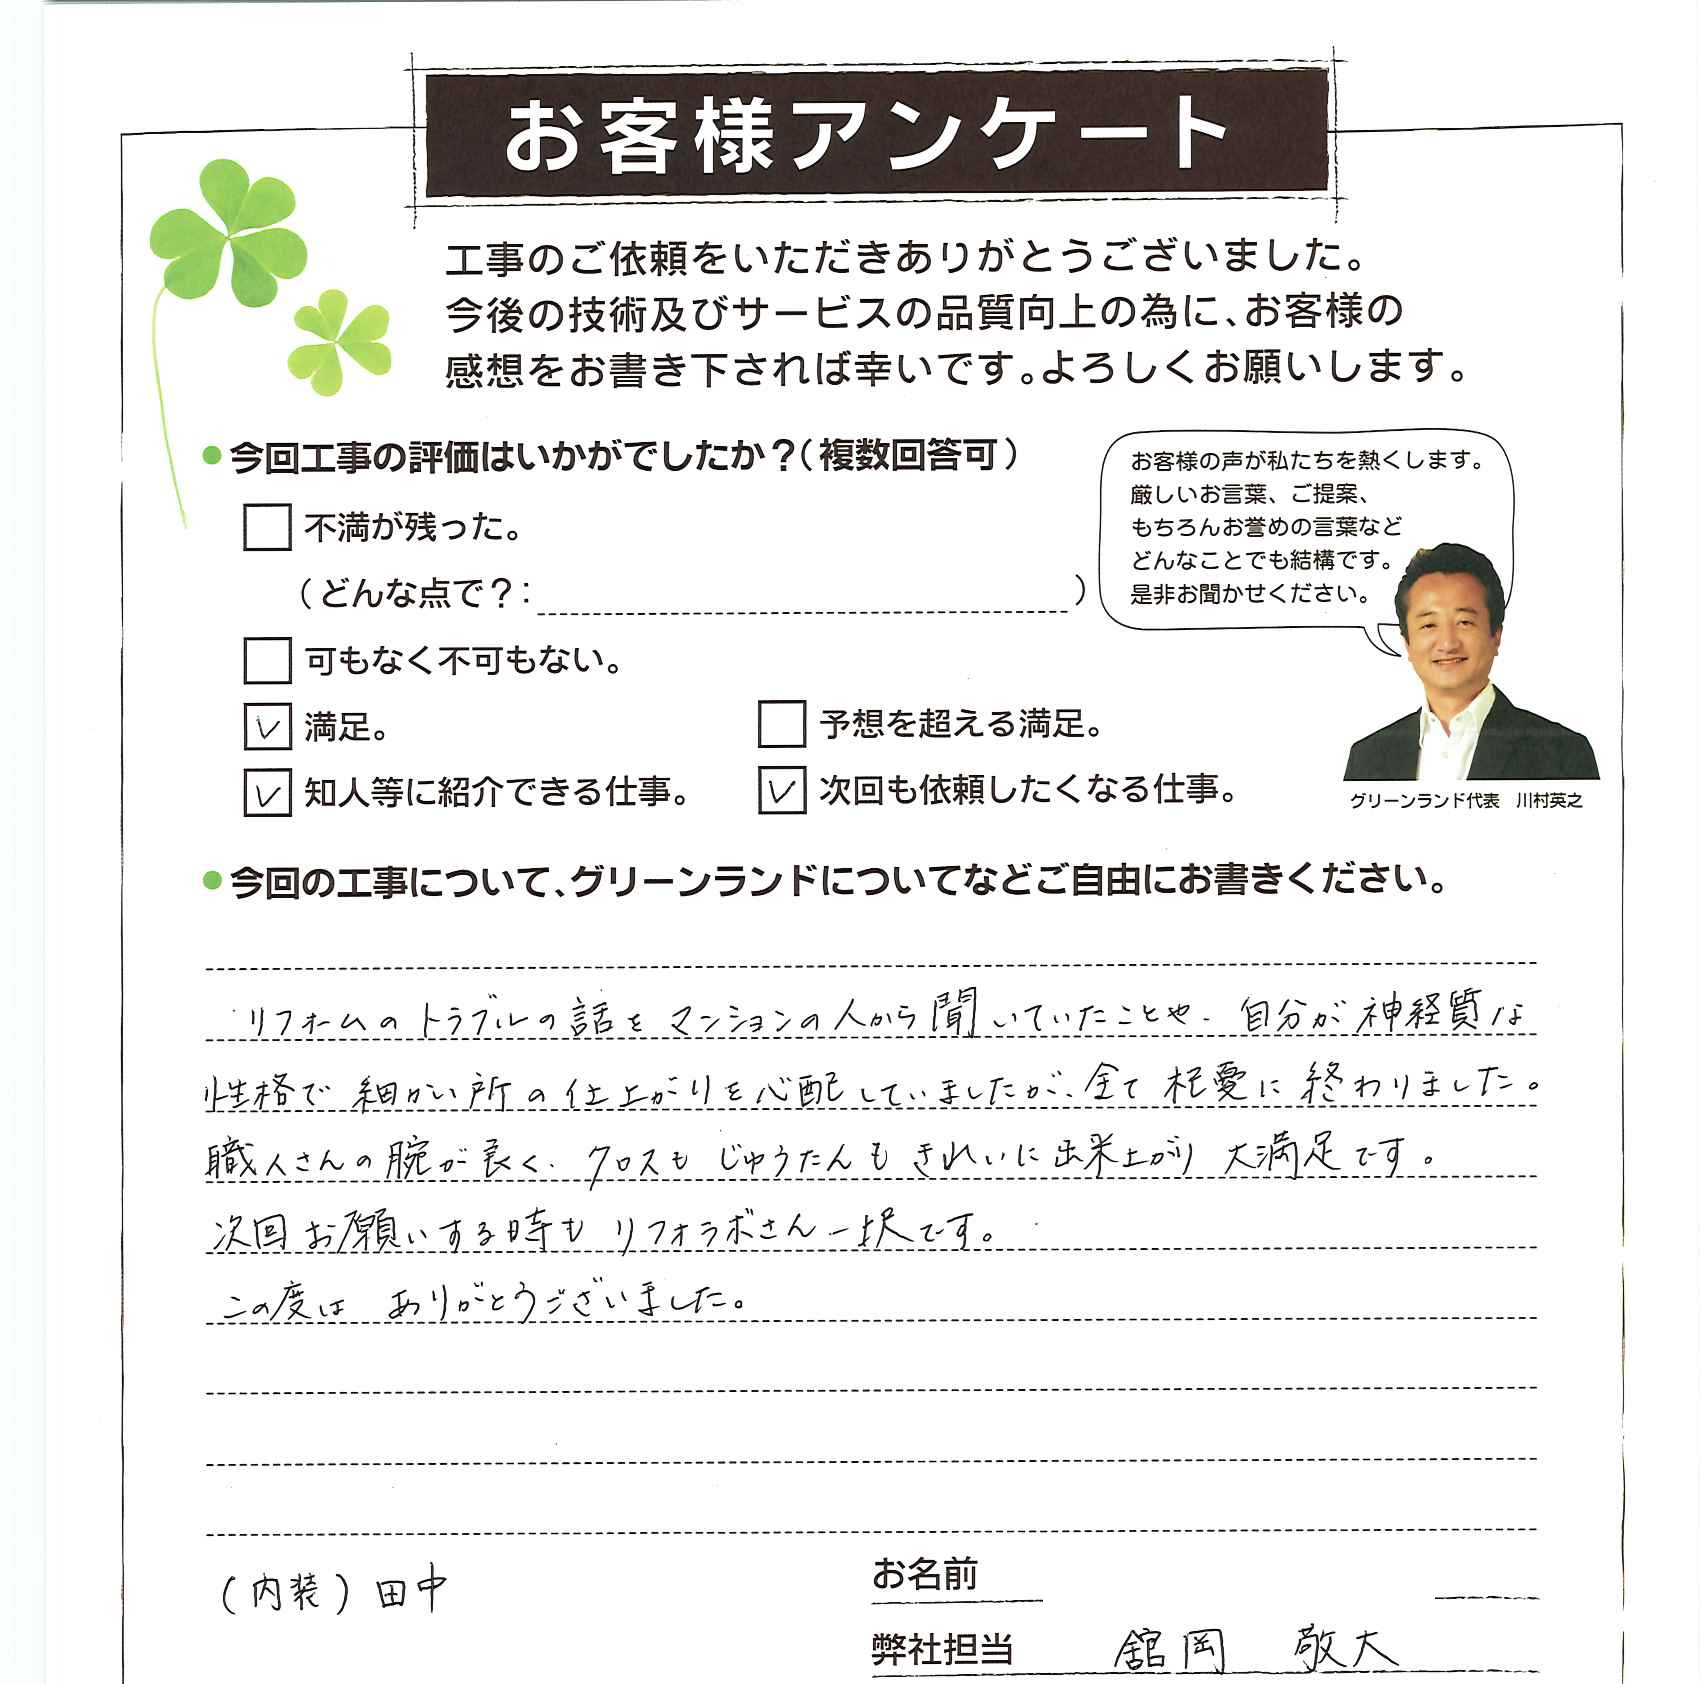 お客様アンケート
工事のご依頼をいただきありがとうございました。
今後の技術及びサービスの品質向上の為に、お客様の
感想をお書き下されれば幸いです。よろしくお願いします。
●今回工事の評価はいかがでしたか？（複数回答可）
不満が残った。
（どんな点で？： ）
可もなく不可もない。
満足。
予想を超える満足。
知人等に紹介できる仕事。
次回も依頼したくなる仕事。
お客様の声が私たちを熱くします。
厳しいお言葉、ご提案、
もちろんお誉めの言葉など
どんなことでも結構です。
是非お聞かせください。
グリーンランド代表　川村英之
●今回の工事について、グリーンランドについてなどご自由にお書きください。
リフォームのトラブルの話をマンションの人から聞いていたことや、自分が神経質な
性格で細かい所の仕上がりを心配していましたが、全て杞憂に終わりました。
職人さんの腕が良く、クロスもじゅうたんもきれいに出来上がり大満足です。
次回お願いする時もリフォラボさん一択です。
この度は ありがとうございました。
（内装）田中
お名前
弊社担当 舘岡 敬大